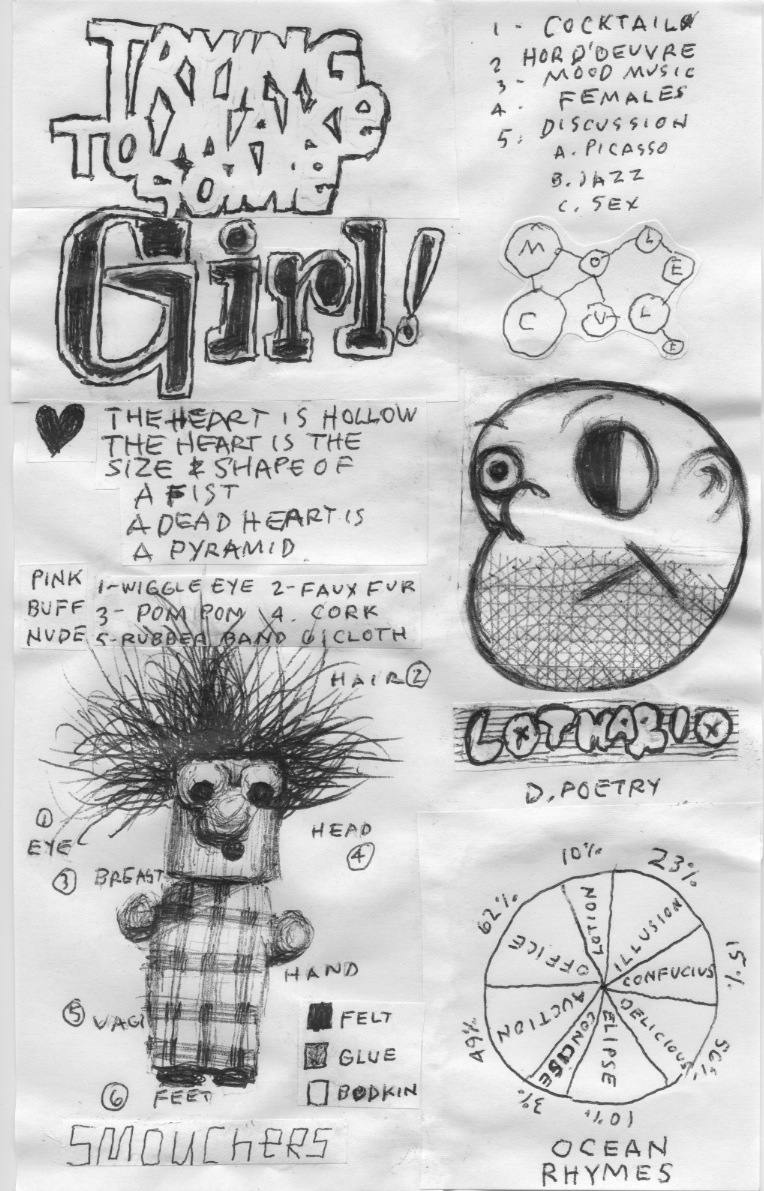 TRYING
TO MAKE
SOME
Girl!
THE HEART IS HOLLOW
THE HEART IS THE
SIZE & SHAPE OF
A FIST
A DEAD HEART IS
A PYRAMID
PINK
BUFF
NUDE
1-WIGGLE EYE 2-FAUX FUR
3- POM POM 4. CORK
5-RUBBER BAND 6 CLOTH
HAIR 2
1
EYE
HEAD
4
3 BREAST
HAND
5 VAGI
6 FEET
FELT
GLUE
BODKIN
SMOUCHERS
1 - COCKTAILS
2 HORD'OEUVRE
3 - MOOD MUSIC
4. FEMALES
5. DISCUSSION
A. PICASSO
B. JAZZ
C. SEX
M O L E
C U L E
LOTHARIO
D. POETRY
10% LOTION
23% ILLUSION
15% CONFUCIUS
50% DELICIOUS
10% ELIPSE
3% CONCISE
49% AUCTION
62% OFFICE
OCEAN
RHYMES